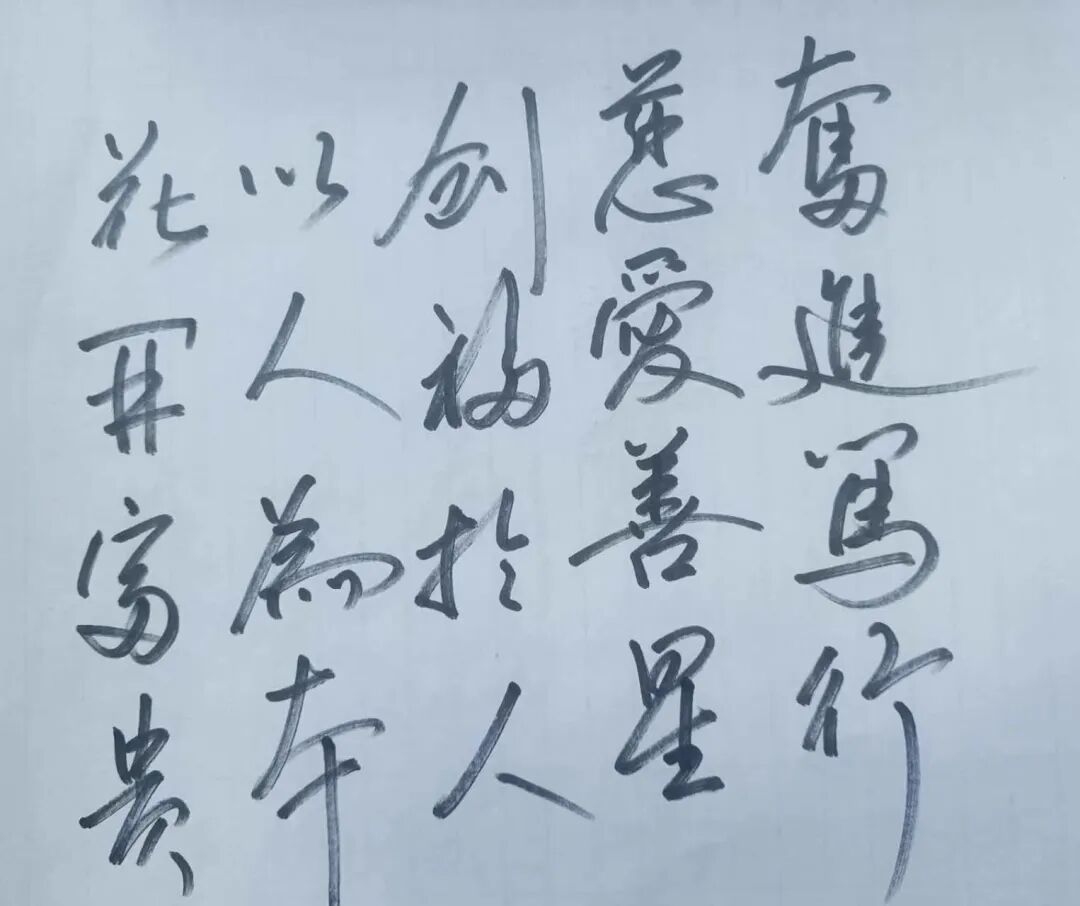 奮進篤行
慈愛善星
創福於人
以人為本
花開富貴